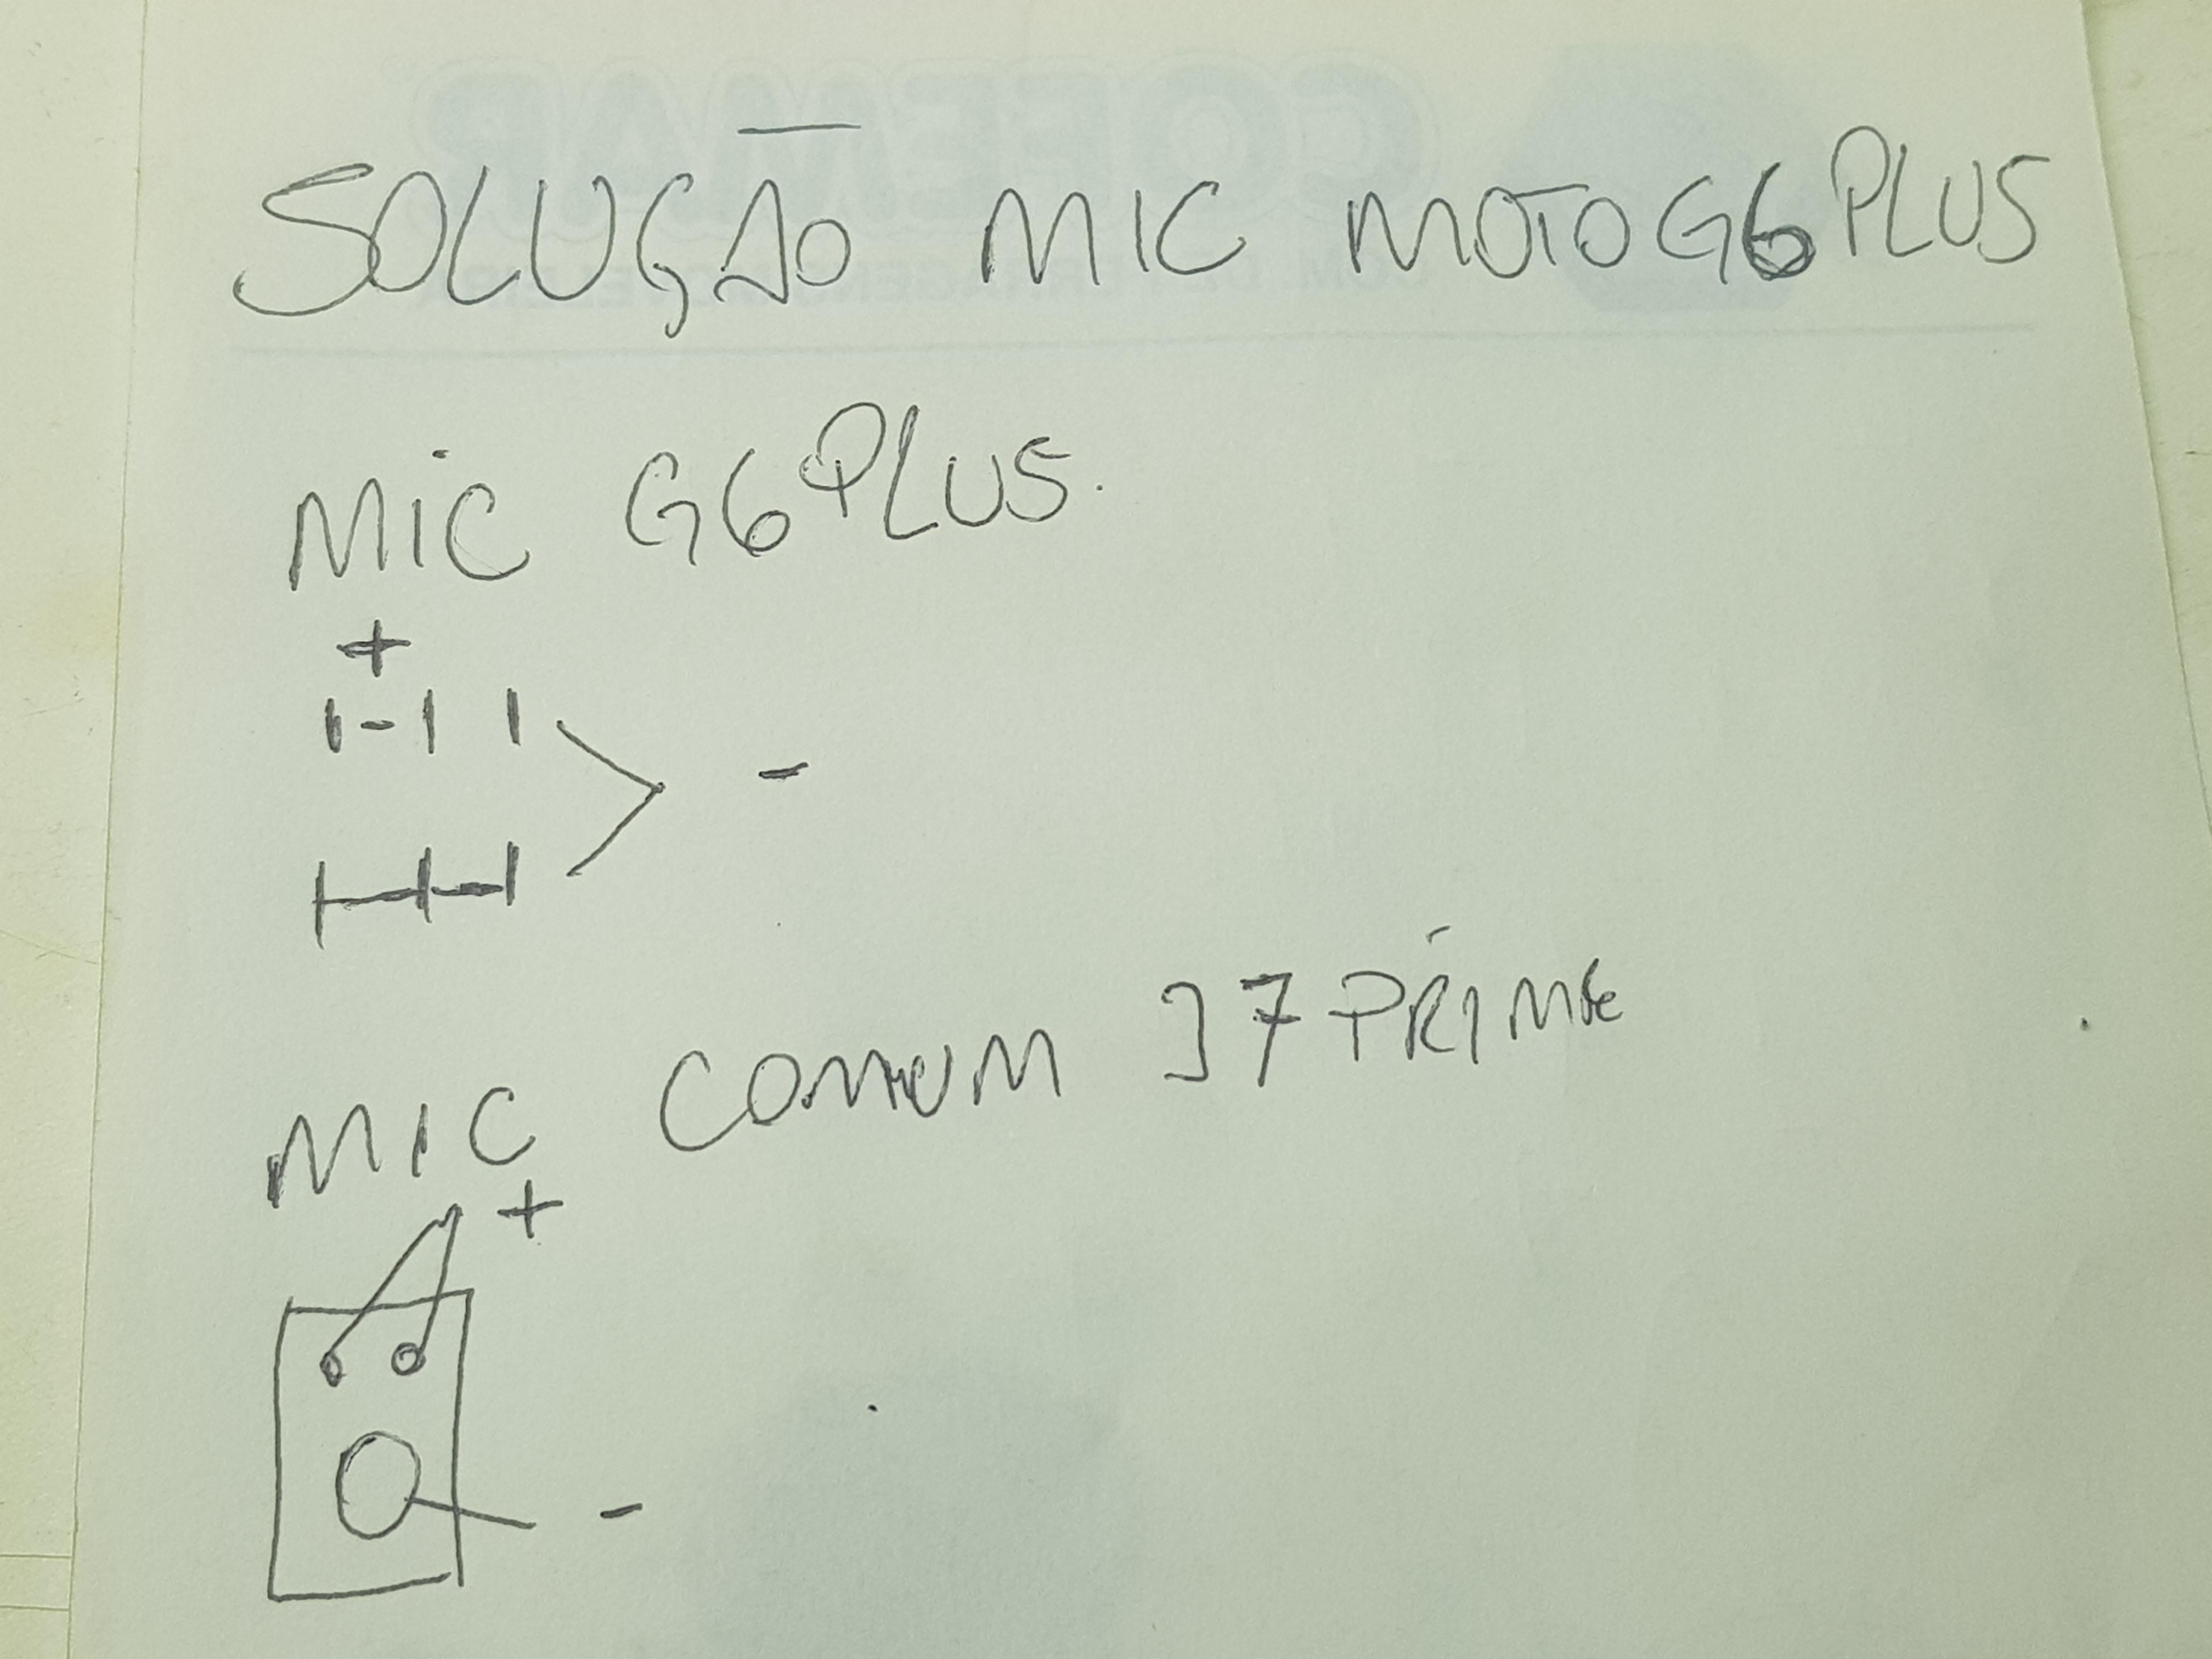 SOLUÇÃO MIC MOTO G6 PLUS
MIC G6 PLUS.
+
-
MIC COMUM J7 PRIME
+
-